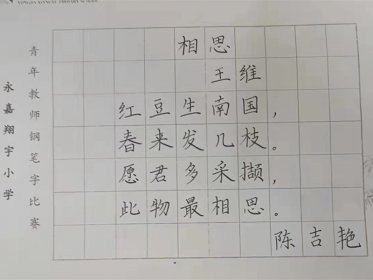 相思
王维
红豆生南国，
春来发几枝。
愿君多采撷，
此物最相思。
陈吉艳
青年教师钢笔字比赛
永嘉翔宇小学